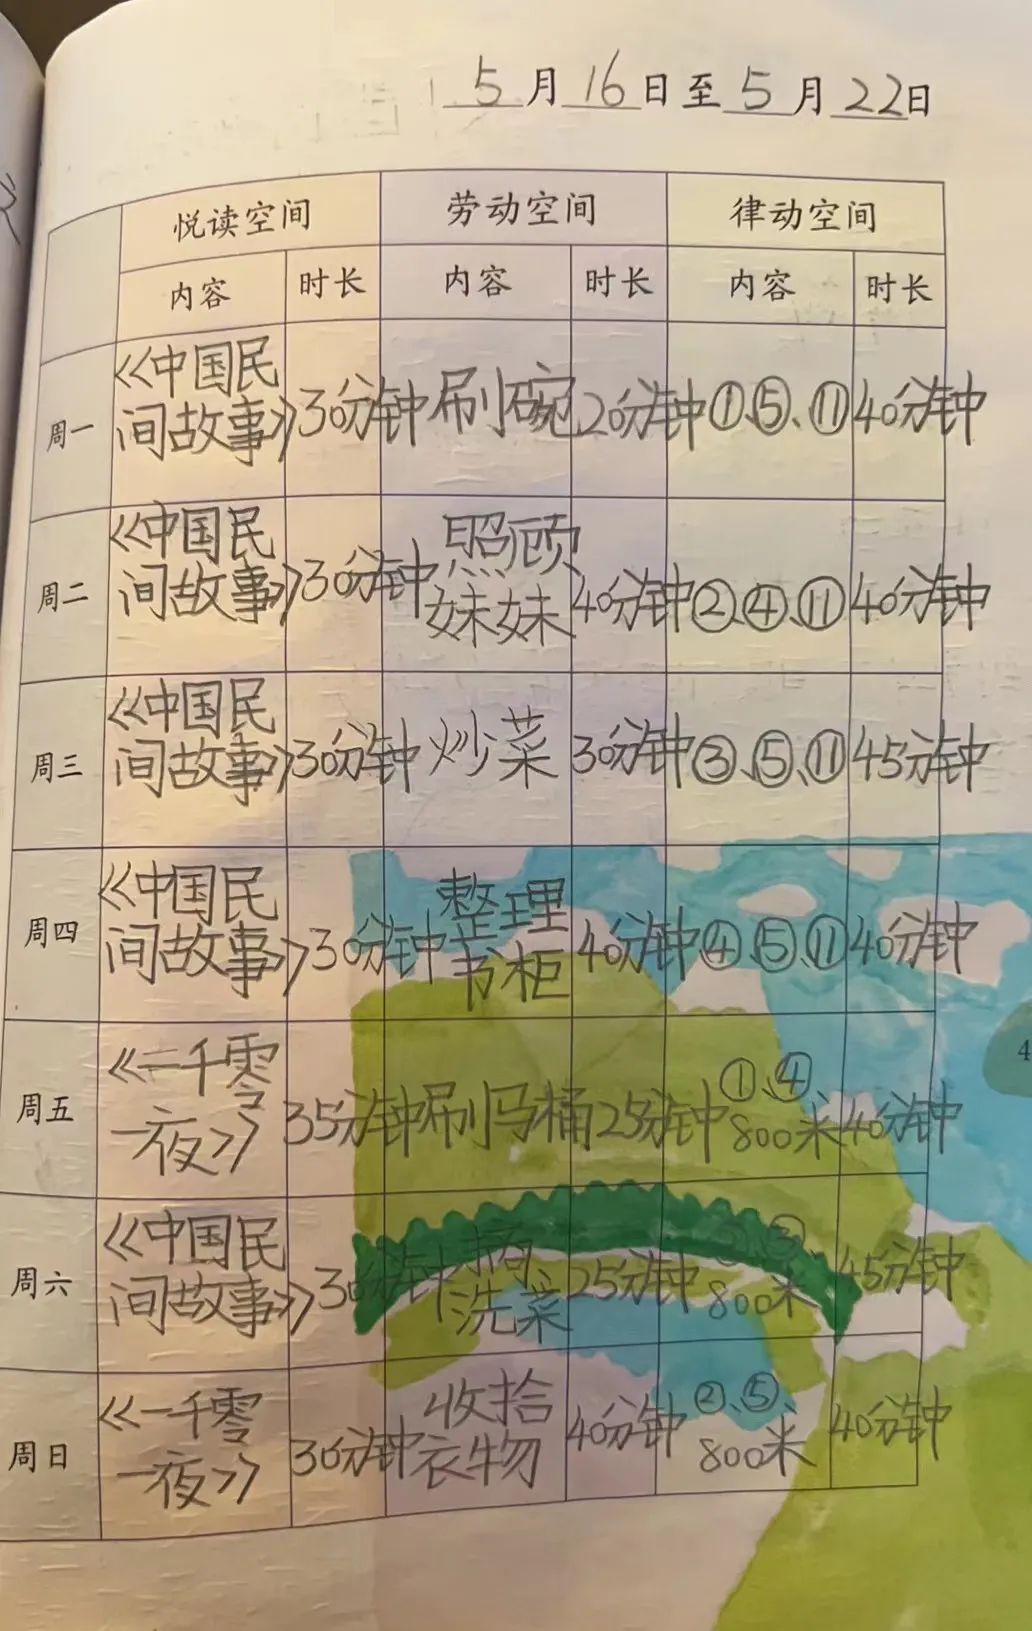 5月16日至5月22日
悦读空间 劳动空间 律动空间
内容 时长 内容 时长 内容 时长
周一 《中国民间故事》 30分钟 刷碗 20分钟 ①、⑤、⑪ 40分钟
周二 《中国民间故事》 30分钟 照顾妹妹 40分钟 ②、④、⑪ 40分钟
周三 《中国民间故事》 30分钟 炒菜 30分钟 ③、⑤、⑪ 45分钟
周四 《中国民间故事》 30分钟 整理书柜 40分钟 ④、⑤、⑪ 40分钟
4
周五 《一千零一夜》 35分钟 刷马桶 25分钟 ①、④ 800米 40分钟
周六 《中国民间故事》 30分钟 洗菜 25分钟 800米 45分钟
周日 《一千零一夜》 30分钟 收拾衣物 40分钟 ②、⑤、800米 40分钟